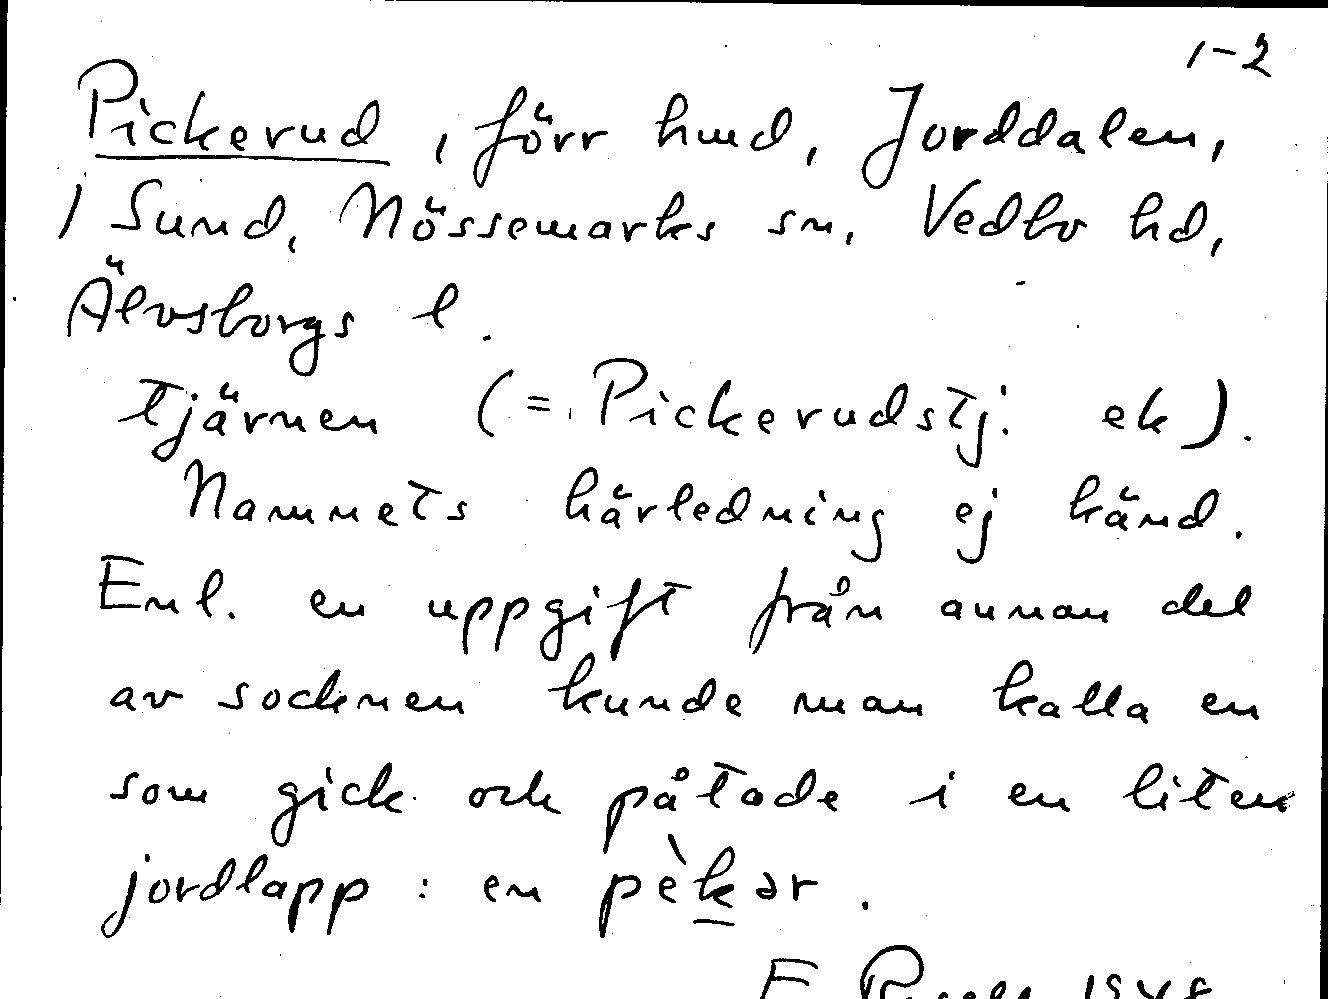 1-2
Pickerud, förr hmd, Jorddalen,
1 Sund, Nössemarks sn, Vedbo hd,
Älvsborgs l.
tjärnen (= Pickerudstj. ek).
Namnets härledning ej känd.
Enl. en uppgift från annan del
av socknen kunde man kalla en
som gick och påtade i en liten
jordlapp: en pèkər.